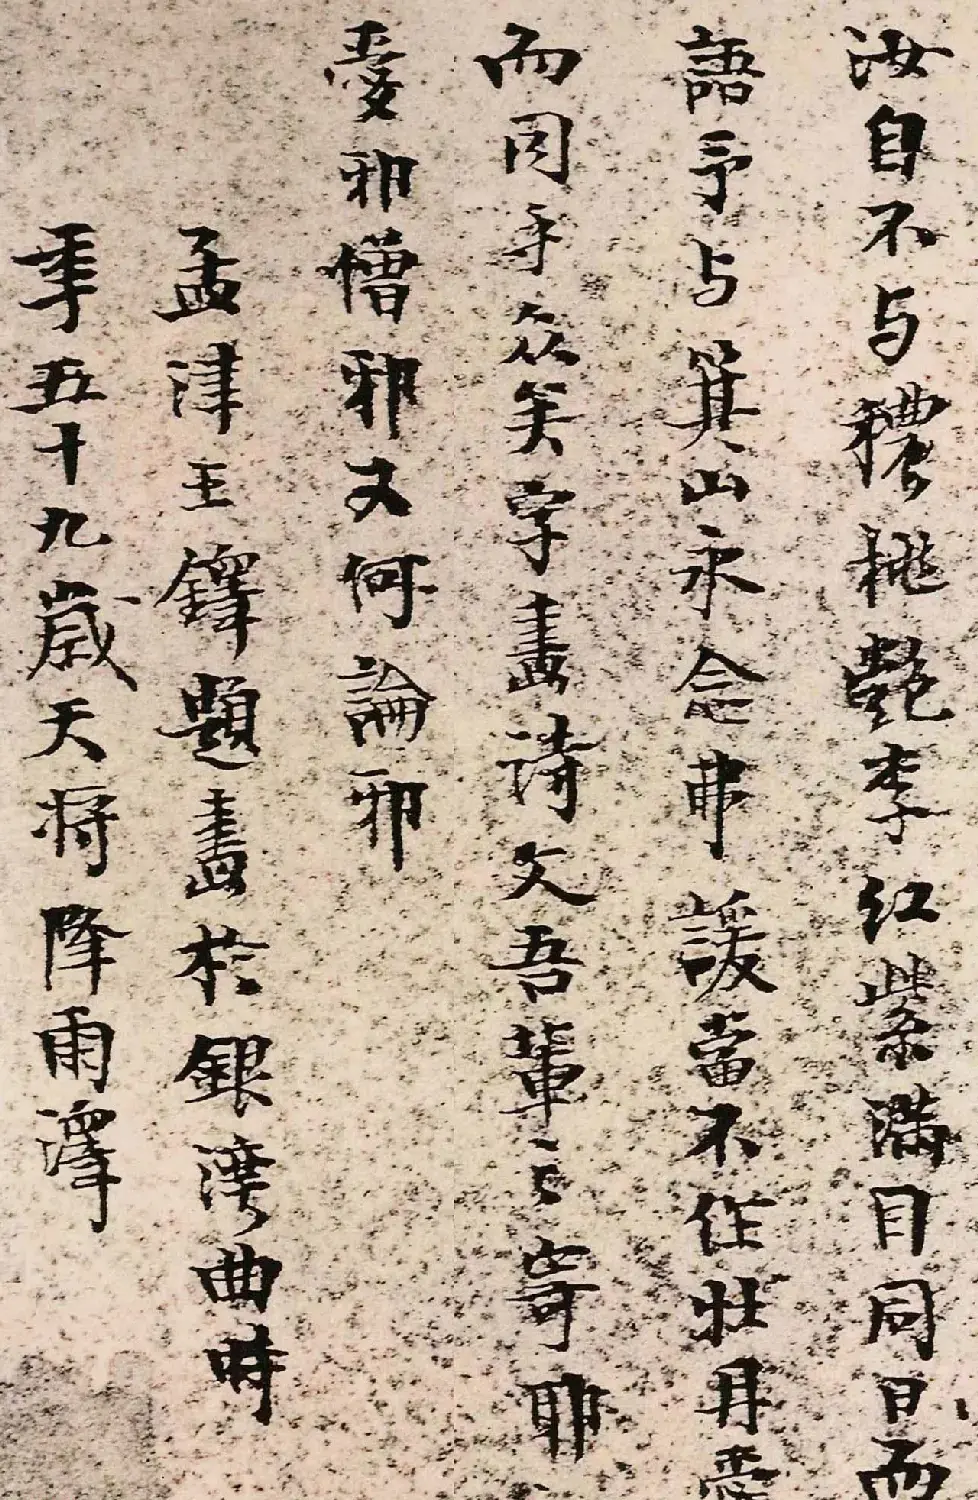 汝自不与穠桃艷李红紫满目同日而
語予与箕山永念弗諼當不在壮月
而同乎众矣字畫诗文吾輩之寄耶
憂邪憎邪又何論邪
孟津王鐸題畫於銀湾曲時
年五十九歲天将降雨澤